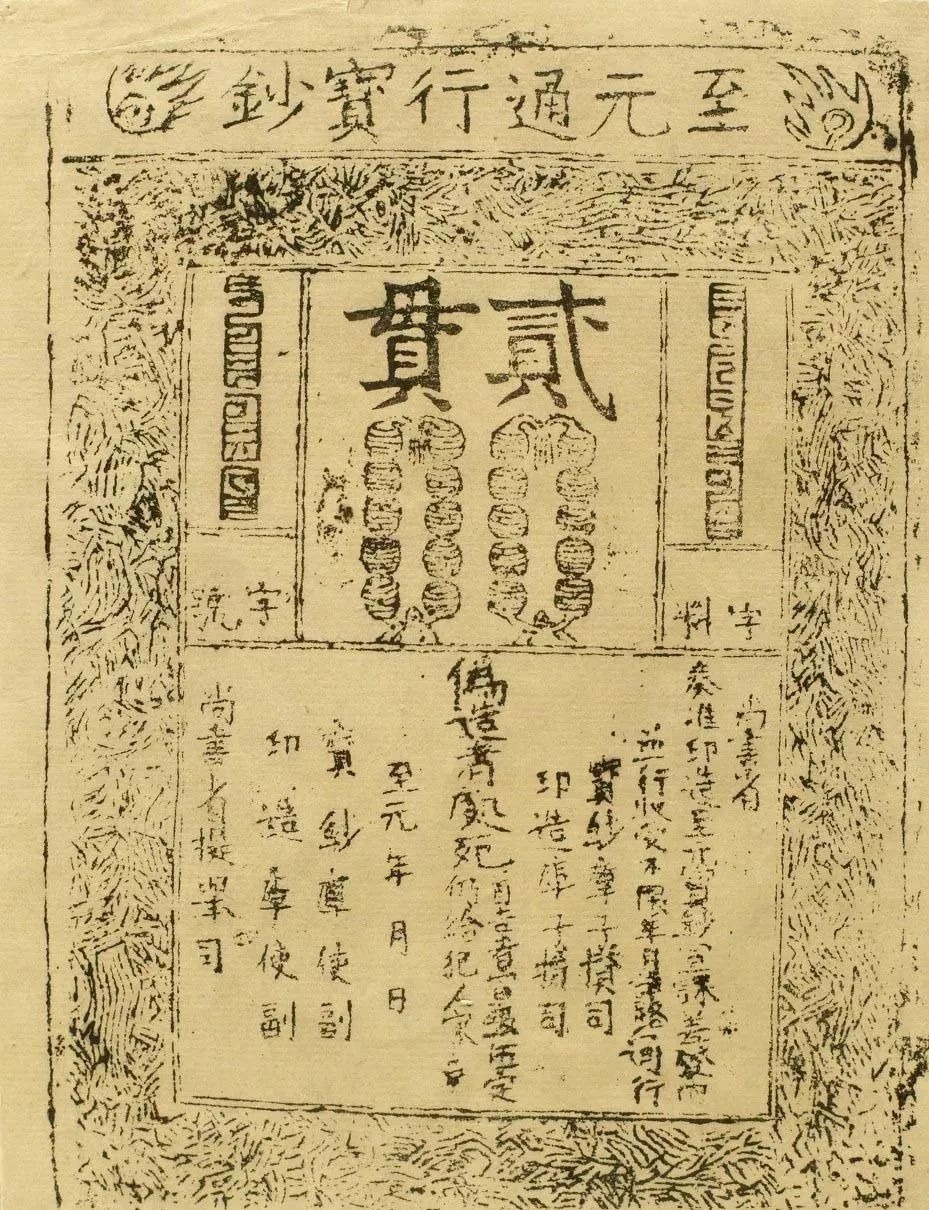 至元通行寳鈔
貳貫
字料
字號
尚書省
奏准印造至元寳鈔宣課差役內
並行收受不限年月諸路通行
寳鈔庫子攢司
印造庫子攢司
偽造者處死
首告者賞銀伍定
仍給犯人家產
至元 年 月 日
寳鈔庫使副
印造庫使副
尚書省提舉司